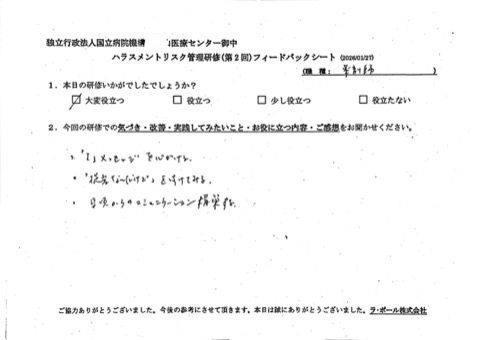 独立行政法人国立病院機構 医療センター御中
ハラスメントリスク管理研修(第2回)フィードバックシート (2026/01/27)
(職 種: 薬剤師 )
1.本日の研修いかがでしたでしょうか?
☑ 大変役立つ □ 役立つ □ 少し役立つ □ 役立たない
2.今回の研修での気づき・改善・実践してみたいこと・お役に立つ内容・ご感想をお聞かせください。
・「I」メッセージを心がける。
・「提案なんだけど」を付けてみる。
・日頃からのコミュニケーション
ご協力ありがとうございました。今後の参考にさせて頂きます。本日は誠にありがとうございました。ラ・ポール株式会社